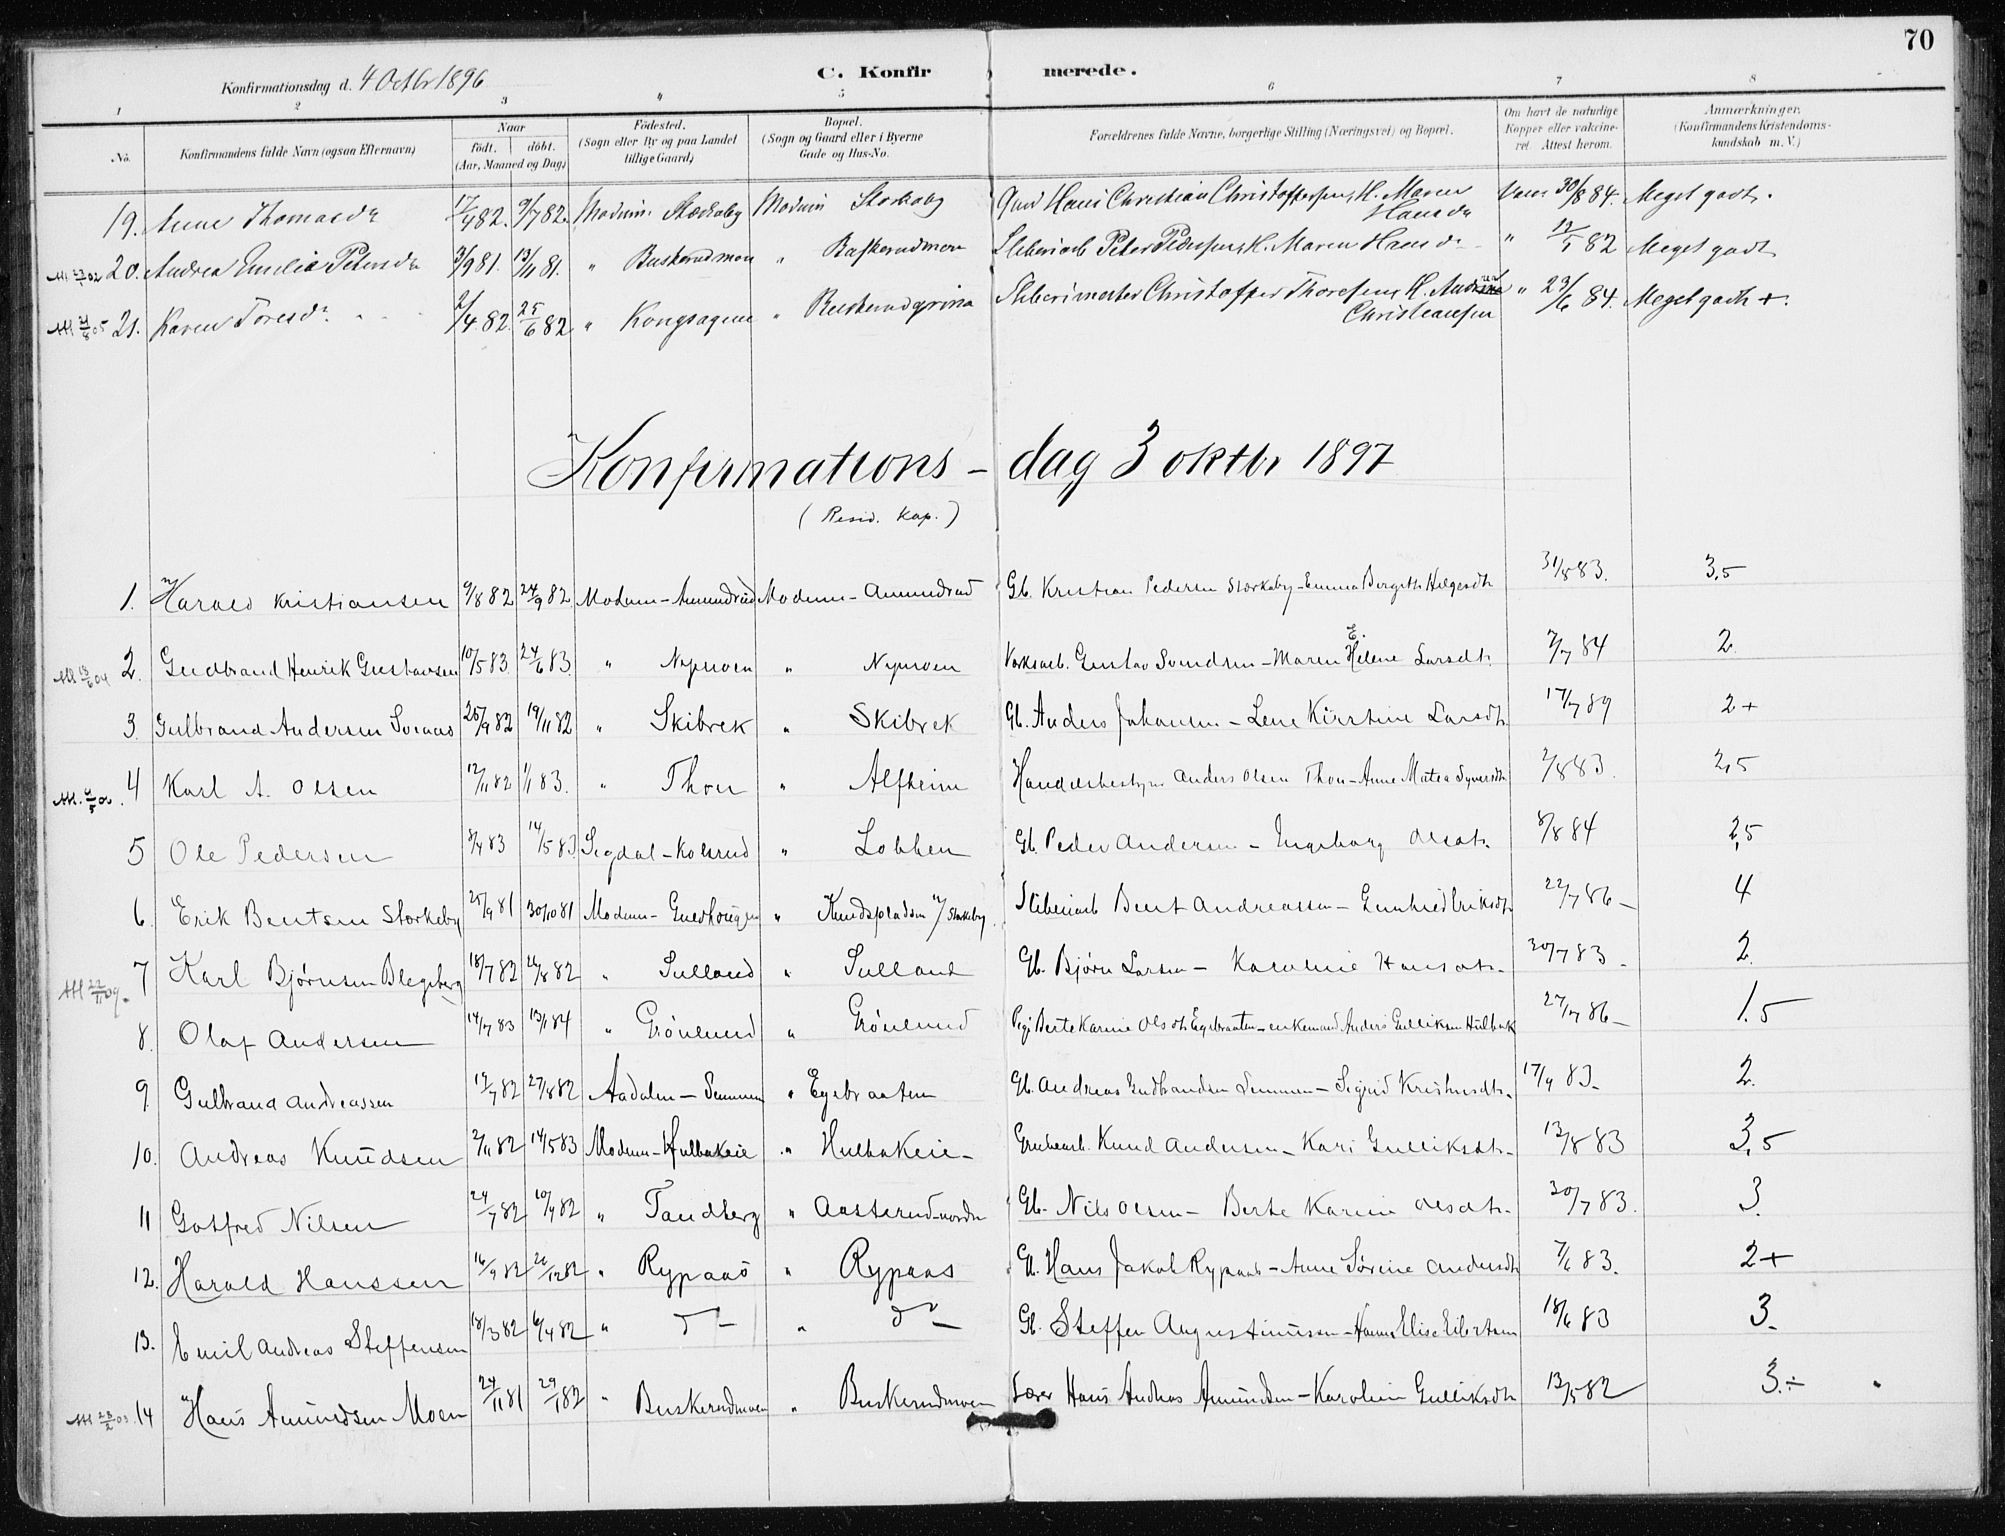 70
Konfirmationsdag d. 4 Octbr 1896
C. Konfirmerede.
1 2 3 " 5 6 7 8
No. Konfirmandens fulde Navn (ogsaa Efternavn) Naar födt. döbt. (Aar, Maaned og Dag) Födested. (Sogn eller By og paa Landet tillige Gaard) Bopæl. (Sogn og Gaard eller i Byerne Gade og Hus-No. Forældrenes fulde Navne, borgerlige Stilling (Næringsvei) og Bopæl. Om havt de naturlige Kopper eller vaccineret. Attest herom. Anmærkninger. (Konfirmandens Kristendomskundskab m. V.)
19. Anne Thomasdr 17/4 82. 9/7 82. Modum Storkeby Modum Storkeby Hans Christian Christoffersen, H. Maren Hansdr Vacc 30/8 84. Meget godt.
20. Andrea Emilie Petersdr 3/9 81. 13/11 81. " Buskerudmoen " Buskerudmoen Sliberiarb Peter Pedersen, H. Maren Hansdr " 82 Meget godt
21. Karen Toresdr 2/4 82 25/6 82 " Kongsagene " Buskerudgrina Sliberimester Christoffer Thoresen, H. Andrea Christiansen " 23/6 84. Meget godt +.
Konfirmations-dag 3 oktbr 1897
(Resid. Kap.)
1. Harald Kristiansen 9/8 82 24/9 82 Modum - Amundrud Modum - Amundrud Gb. Kristian Pedersen Storkeby - Emma Bergith Helgesdt. 31/8 83. 3,5
2. Gudbrand Henrik Gustavsen 10/5 83 24/6 83. " Nymoen " Nymoen Verksarb. Gustav Svendsen - Maren E. Helene Larsdt. 7/7 84 2.
3. Gulbrand Andersen 25/9 82 19/11 82 " Skibrek " Skibrek Gb. Anders Johansen - Lene Kirstine Larsdt. 17/7 89 2+
4 Karl A. Olsen 12/11 82 1/1 83. " Thon " Alfheim Handelsbestyrer Anders Olsen Thon - Anne Matea Syversdt. 2/8 83. 2,5
5 Ole Pedersen 8/4 83 14/5 83 Sigdal - Kolsrud " Lobben Gb. Peder Andersen - Ingeborg Olsdt. 8/8 84 2,5
6. Erik Bentsen Storkeby 25/9 81 30/10 81 Modum - Guldhougen " Knudspladsen u/ Storkeby. Sliberiarb Bent Andreassen - Gunhild Eriksdt. 22/7 86 - 4
7 Karl Bjørnsen Blegeberg 18/7 82 /8 82 " Sulland " Sulland Gb. Bjørn Larsen - Karoline Hansdt. 30/7 83 - 2.
8. Olaf Andersen 14/7 83 13/1 84 " Grönlund " Grönlund Pige Berte Karine Olsdt. Egebraaten - enkemand Anders Gulliksen Hulbak 27/7 86 - 1.5
9 Gulbrand Andreassen 82 27/8 82 Aadalen - Semmen " Egebraaten Gb. Andreas Gudbrandsen Semmen - Sigrid Kristensdt. 17/9 83 - 2.
10. Andreas Knudsen 2/11 82 14/5 83 Modum - Hulbakeie " Hulbakeie - Grubearb. Knud Andersen - Kari Gulliksdt. - 13/8 83 3,5
11 Gotfred Nilsen 24/7 82 10/9 82 " Tandberg " Aasterud nordre Gb. Nils Olsen - Berte Karine Olsdt. 30/7 83. 3.
12. Harald Hanssen 16/9 82 26/12 82 " Rypaas " Rypaas Gb. Hans Jakob Rypaas - Anne Sørine Andersdt. 7/6 83. 2+
13. Emil Andreas Steffensen 18/3 82 6/4 82 " do - " do - Gb. Steffen Augustinussen - Hanna Elise Eilertsen 18/6 83 3.
14 Hans Amundsen Moen 24/11 81 29/1 82 " Buskerudmoen " Buskerudmoen Lærer Hans Andreas Amundsen - Karoline Gulliksdt 13/5 82 3.÷